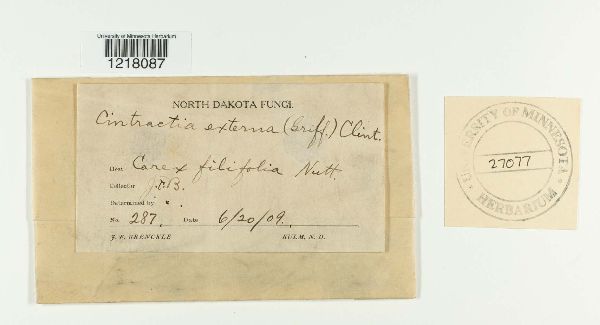 University of Minnesota Herbarium
1218087
NORTH DAKOTA FUNGI.
Cintractia externa (Griff.) Clint.
Host Carex filifolia Nutt.
Collector J.F.B.
Determined by " .
No. 287, Date 6/20/09.
J. F. BRENCKLE KULM, N. D.
UNIVERSITY OF MINNESOTA
27077
HERBARIUM